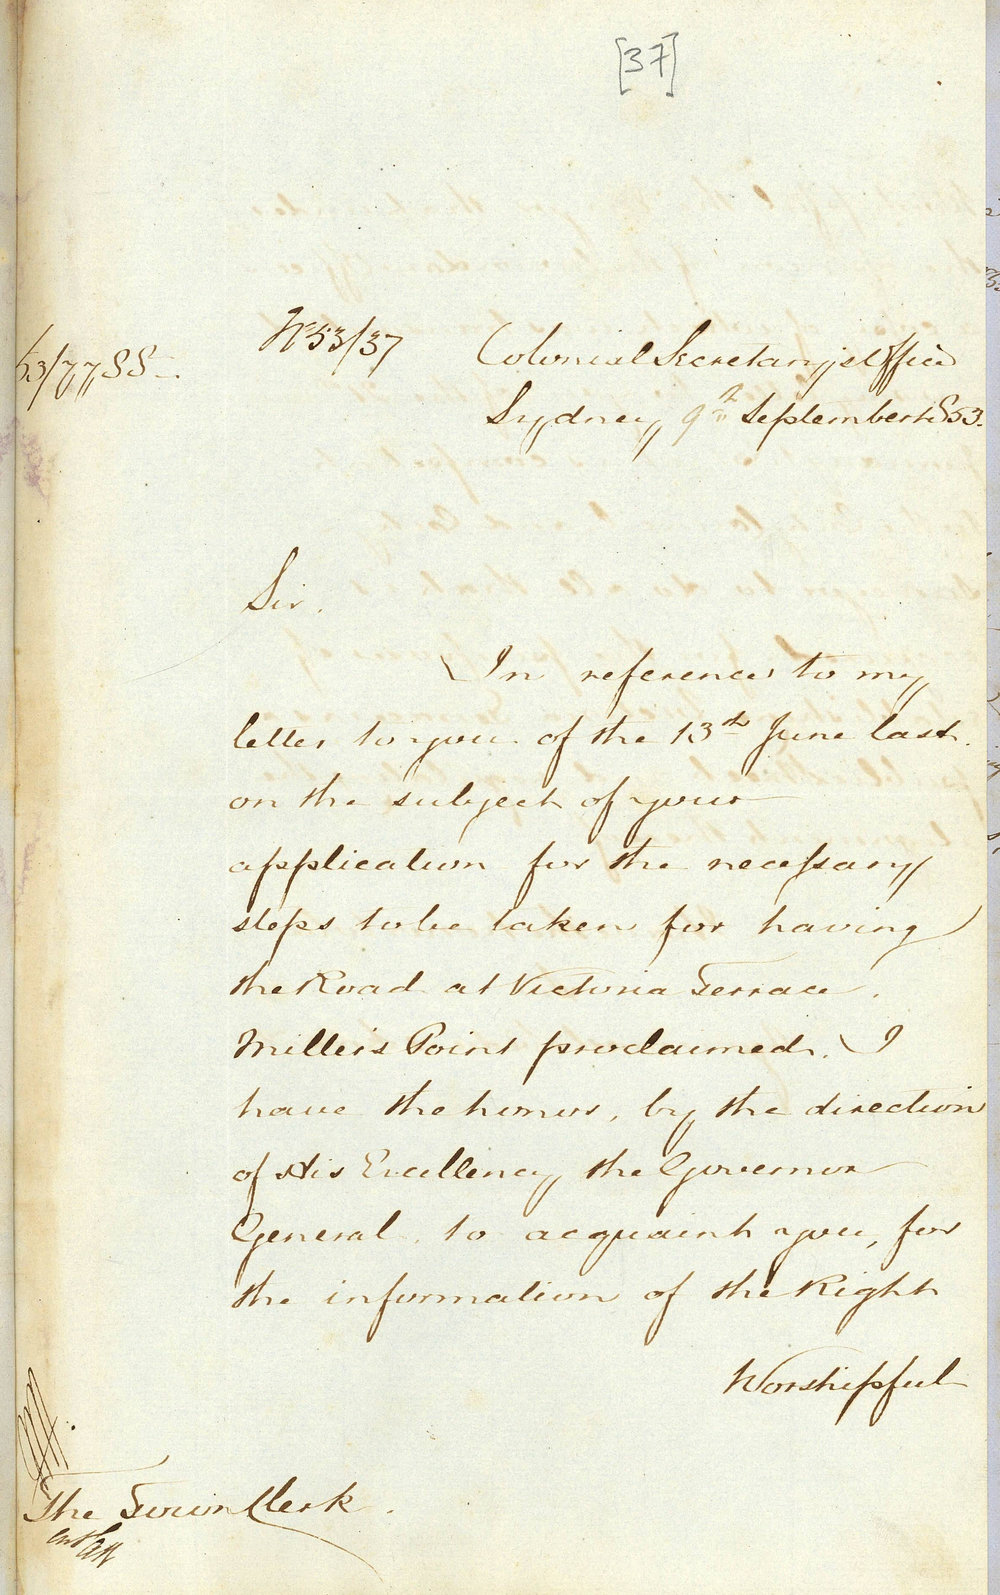 [37]
53/7788
No 53/37
Colonial Secretary's Office
Sydney 9th September 1853.
Sir,
In reference to my
letter to you of the 13th June last
on the subject of your
application for the necessary
steps to be taken for having
the Road at Victoria Terrace,
Miller's Point proclaimed, I
have the honor, by the direction
of His Excellency the Governor
General, to acquaint you, for
the information of the Right
Worshipful
The Town Clerk.